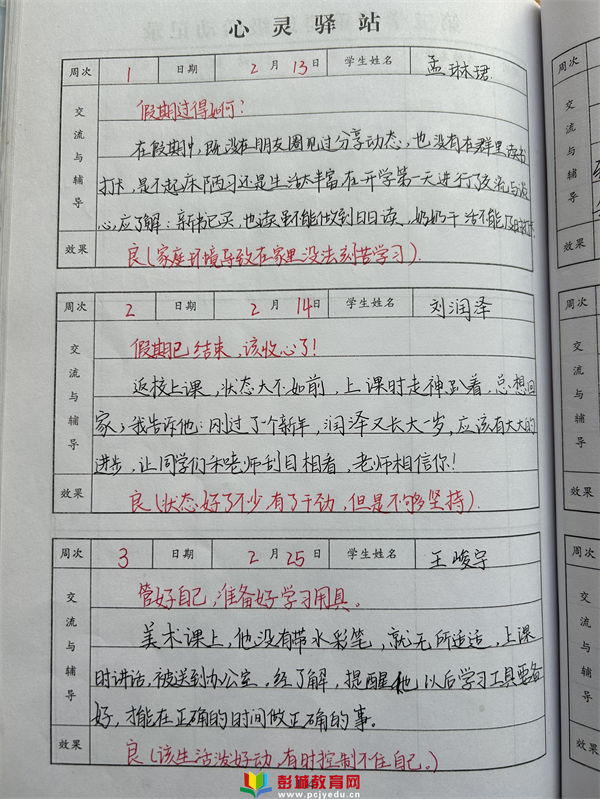 心灵驿站
周次 1 日期 2月13日 学生姓名 孟琳珺
交流与辅导
假期过得如何?
在假期中,既没在朋友圈见过分享动态,也没有在群里读书
打卡,是不起床陋习还是生活太丰富在开学第一天进行了交流与谈
心,应了解:新书已买,也读
效果 良(家庭环境导致在家里没法刻苦学习).
周次 2 日期 2月14日 学生姓名 刘润泽
交流与辅导
假期已结束,该收心了!
返校上课,状态大不如前,上课时走神趴着,总想回
家;我告诉他:刚过了个新年,润泽又长大一岁,应该有大大的
进步,让同学们和老师刮目相看,老师相信你!
效果 良(状态好了不少,有了干劲,但是不够坚持)
周次 3 日期 2月25日 学生姓名 王峻宇
交流与辅导
管好自己,准备好学习用具。
美术课上,他没有带水彩笔,就无所适适,上课
时讲话,被送到办公室。经了解,提醒他以后学习工具要备
好,才能在正确的时间做正确的事。
效果 良(该生活泼好动,有时控制不住自己。)
彭城教育网
www.pcjyedu.cn